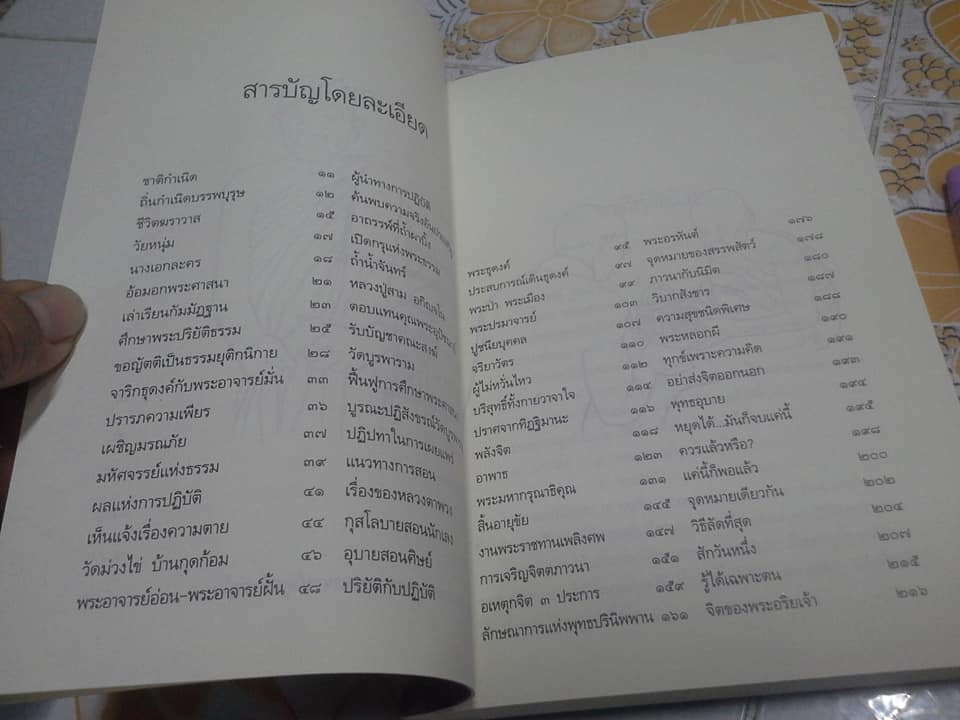 สารบัญโดยละเอียด
ชาติกำเนิด ๑๑
ถิ่นกำเนิดบรรพบุรุษ ๑๒
ชีวิตฆราวาส ๑๕
วัยหนุ่ม ๑๗
นางเอกละคร ๑๘
อ้อมอกพระศาสนา ๒๑
เล่าเรียนกัมมัฏฐาน ๒๓
ศึกษาพระปริยัติธรรม ๒๕
ขอญัตติเป็นธรรมยุติกนิกาย ๒๘
จาริกธุดงค์กับพระอาจารย์มั่น ๓๓
ปรารภความเพียร ๓๖
เผชิญมรณภัย ๓๗
มหัศจรรย์แห่งธรรม ๓๙
ผลแห่งการปฏิบัติ ๔๑
เห็นแจ้งเรื่องความตาย ๔๔
วัดม่วงไข่ บ้านกุดก้อม ๔๖
พระอาจารย์อ่อน-พระอาจารย์ฝั้น ๔๘
ผู้นำทางการปฏิบัติ
ค้นพบความจริง
อาถรรพ์ที่ถ้ำผาบิ้ง
เปิดกรุแห่งพระธรรม
ถ้ำน้ำจันทร์
หลวงปู่สาม อกิญฺจโน
ตอบแทนคุณพระอุปัชฌาย์
รับบัญชาคณะสงฆ์
วัดบูรพาราม
ฟื้นฟูการศึกษาพระศาสนา
บูรณะปฏิสังขรณ์วัดบูรพาราม
ปฏิปทาในการเผยแพร่
แนวทางการสอน
เรื่องของหลวงตาพวง
กุสโลบายสอนนักเลง
อุบายสอนศิษย์
ปริยัติกับปฏิบัติ
พระธุดงค์ ๙๕
ประสบการณ์เดินธุดงค์ ๙๗
พระป่า พระเมือง ๙๙
พระปรมาจารย์ ๑๐๓
ปูชนียบุคคล ๑๐๗
จริยาวัตร ๑๑๐
ผู้ไม่หวั่นไหว ๑๑๒
บริสุทธิ์ทั้งกายวาจาใจ ๑๑๔
ปราศจากทิฏฐิมานะ ๑๑๖
พลังจิต ๑๑๘
อาพาธ ๑๒๓
พระมหากรุณาธิคุณ ๑๓๑
สิ้นอายุขัย ๑๔๕
งานพระราชทานเพลิงศพ ๑๔๗
การเจริญจิตตภาวนา ๑๕๑
อเหตุกจิต ๓ ประการ ๑๕๙
ลักษณาการแห่งพุทธปรินิพพาน ๑๖๑
พระอรหันต์ ๑๗๖
จุดหมายของสรรพสัตว์ ๑๗๘
ภาวนากับนิมิต ๑๘๐
วิบากสังขาร ๑๘๗
ความสุขชนิดพิเศษ ๑๘๘
พระหลอกผี ๑๙๐
ทุกข์เพราะความคิด ๑๙๑
อย่าส่งจิตออกนอก ๑๙๓
พุทธอุบาย ๑๙๔
หยุดได้...มันก็จบแค่นี้ ๑๙๕
ควรแล้วหรือ? ๑๙๘
แค่นี้ก็พอแล้ว ๒๐๐
จุดหมายเดียวกัน ๒๐๒
วิธีลัดที่สุด ๒๐๔
สักวันหนึ่ง ๒๐๗
รู้ได้เฉพาะตน ๒๑๕
จิตของพระอริยเจ้า ๒๑๖